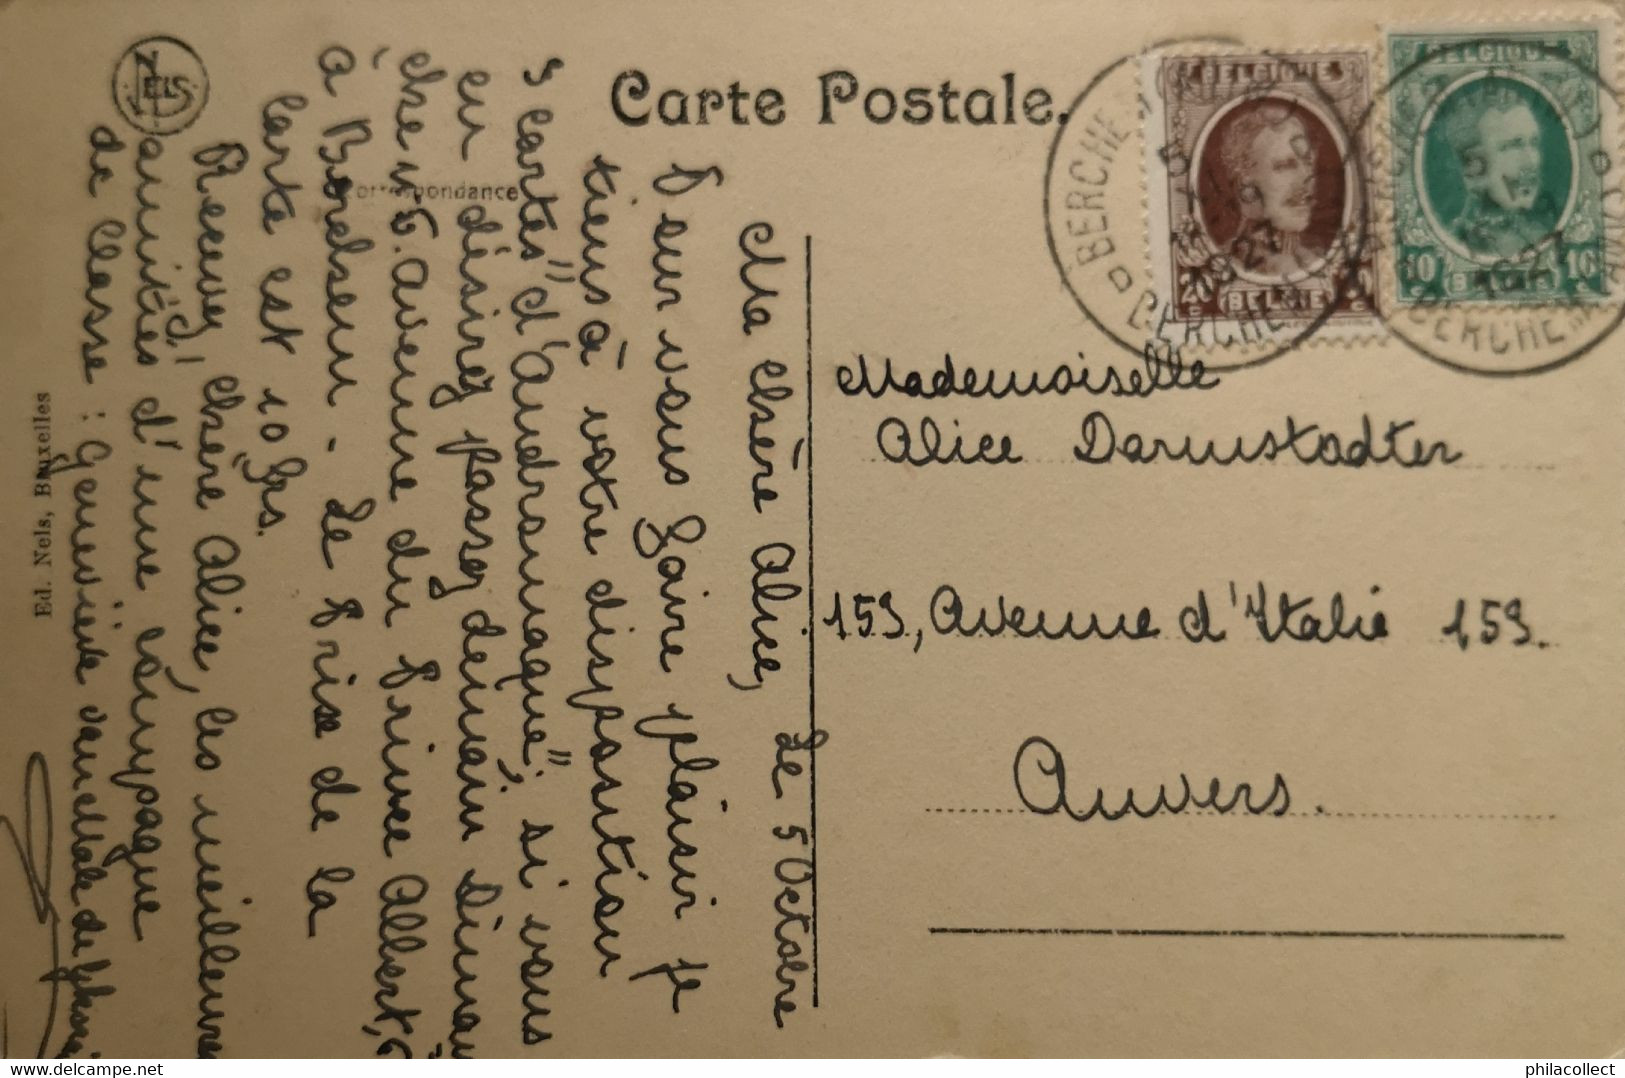 Carte Postale.
Correspondance
NELS
Ed. Nels, Bruxelles
BELGIQUE
20 20
BELGIË
BELGIQUE
10 10
BERCHEM
5
19
1927
BERCHEM
5
1927
BERCHEM
Mademoiselle
Alice Darmstadter
153, Avenue d'Italie 153.
Anvers.
Le 5 Octobre
Ma chère Alice,
Pour vous faire plaisir je
tiens à votre disposition
5 cartes "d'Andromaque", si vous
en désirez passez demain
chez . Avenue du Prince Albert, 6
à Borchem. Le Prix de la
carte est 10 frs.
Recevez, chère Alice, les meilleures
amitiés d'une compagne
de classe : Geneviève
philacollect